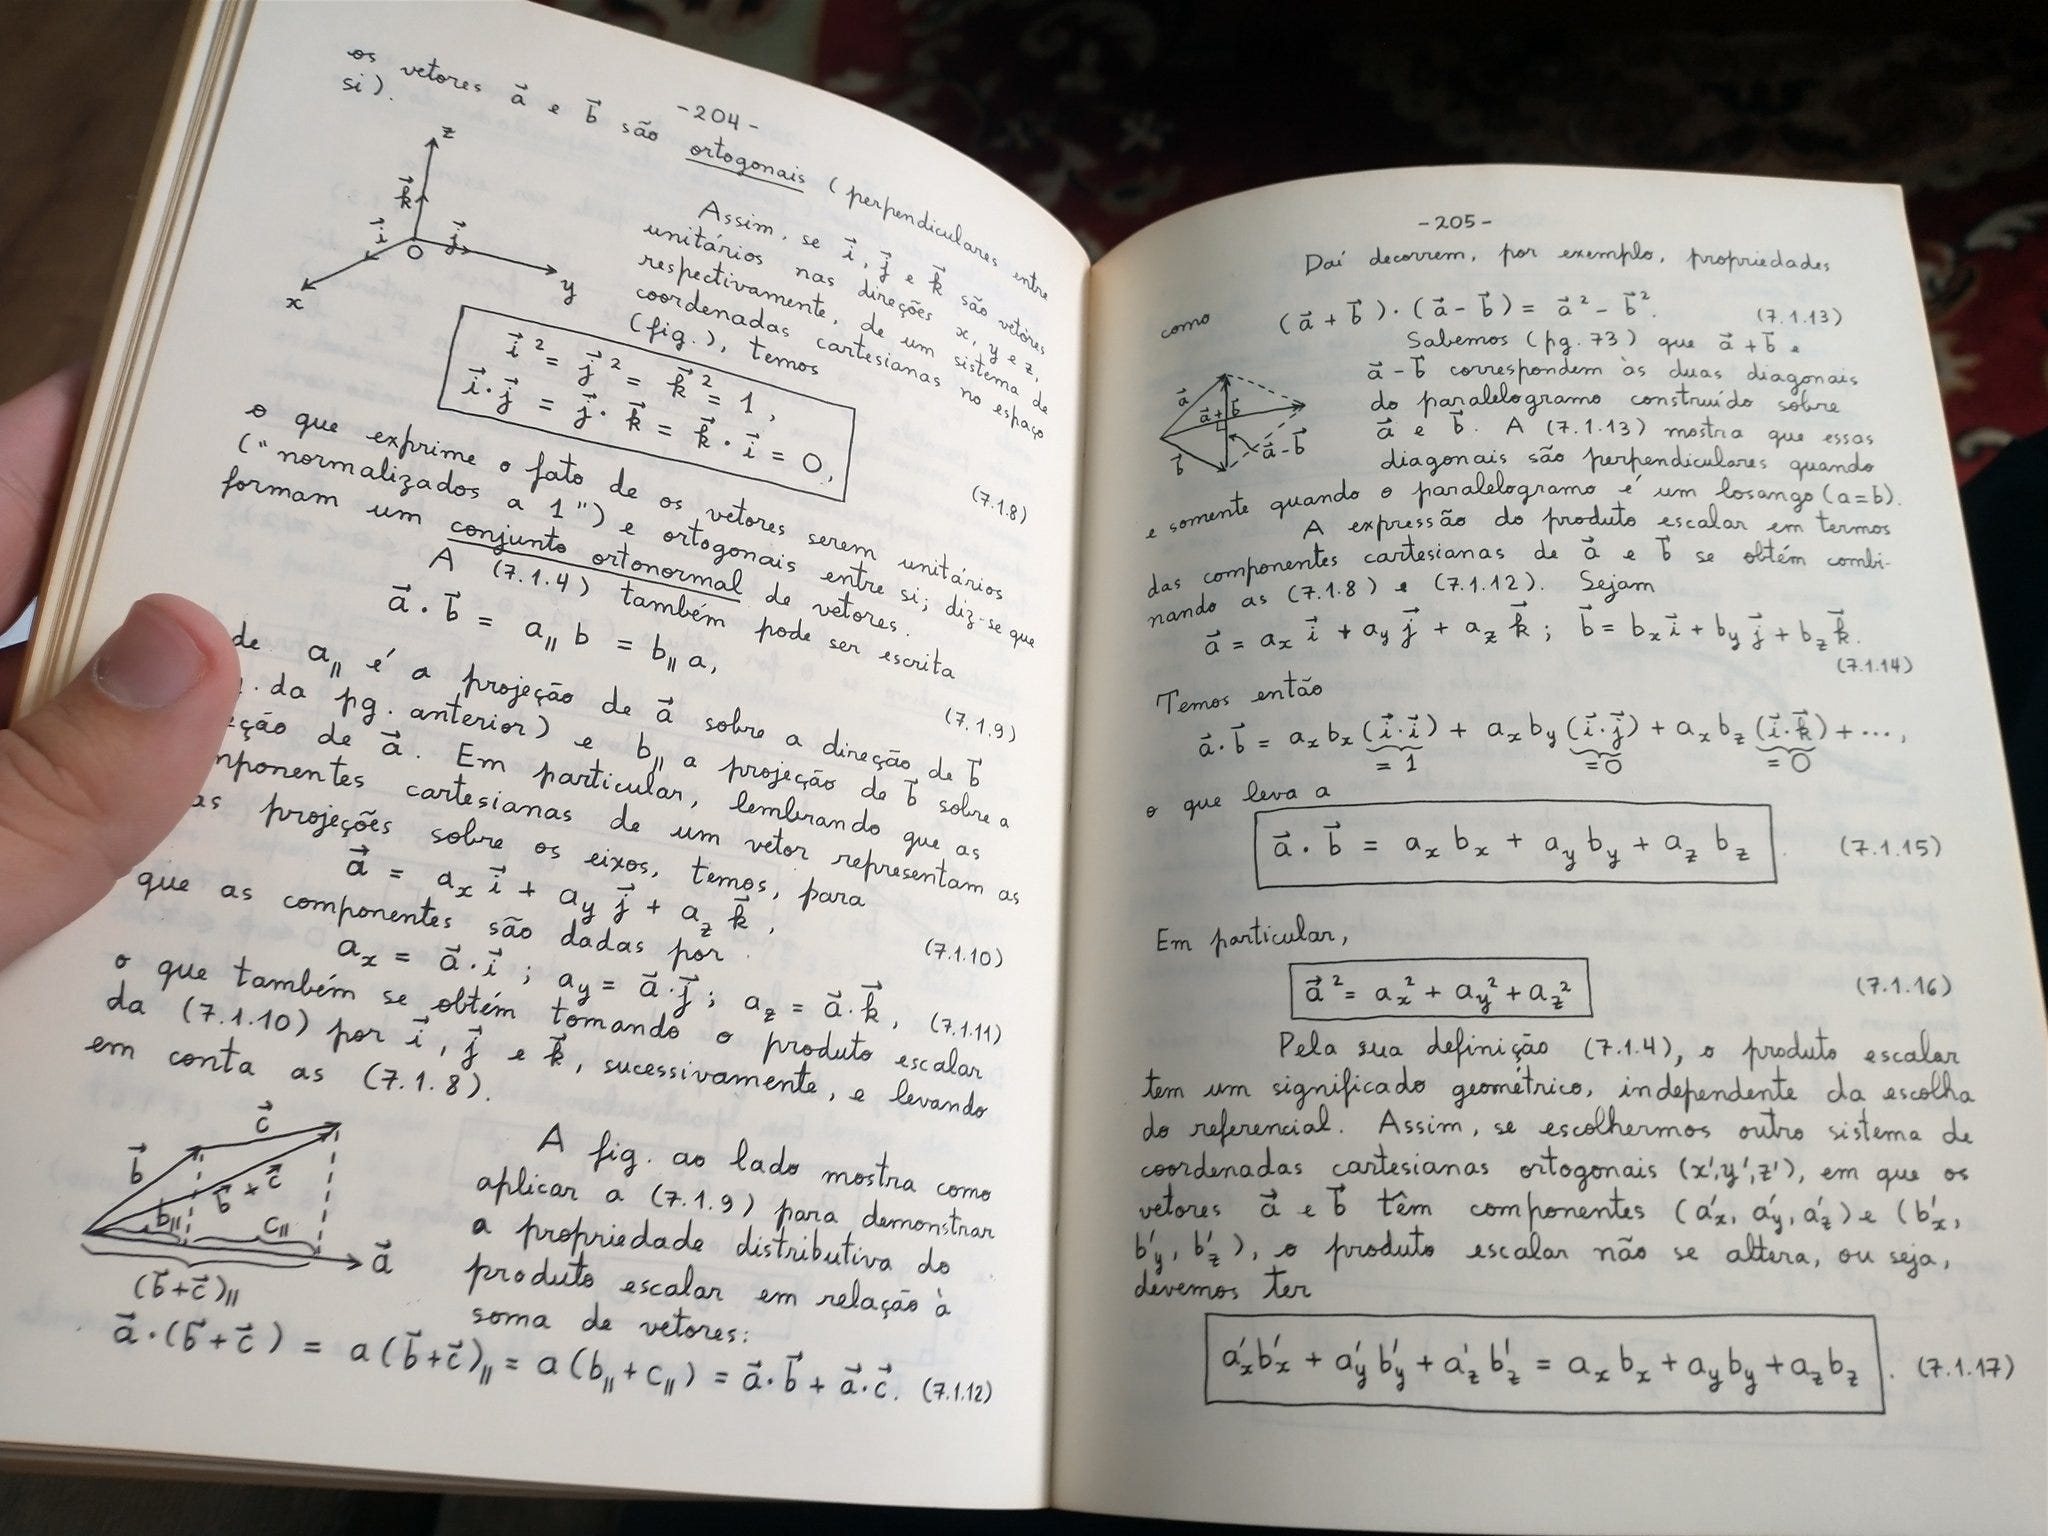 -204-
os vetores a⃗ e b⃗ são ortogonais (perpendiculares entre
si).
z
k⃗
i⃗
j⃗
O
x
y
Assim, se i⃗, j⃗ e k⃗ são vetores
unitários nas direções x, y e z,
respectivamente, de um sistema de
coordenadas cartesianas no espaço
(fig.), temos
i⃗² = j⃗² = k⃗² = 1,
i⃗·j⃗ = j⃗·k⃗ = k⃗·i⃗ = 0,
(7.1.8)
o que exprime o fato de os vetores serem unitários
("normalizados a 1") e ortogonais entre si; diz-se que
formam um conjunto ortonormal de vetores.
A (7.1.4) também pode ser escrita
a⃗·b⃗ = a∥ b = b∥ a,
(7.1.9)
de a∥ é a projeção de a⃗ sobre a direção de b⃗
. da pg. anterior) e b∥ a projeção de b⃗ sobre a
eção de a⃗. Em particular, lembrando que as
mponentes cartesianas de um vetor representam as
as projeções sobre os eixos, temos, para
a⃗ = aₓ i⃗ + a_y j⃗ + a_z k⃗,
(7.1.10)
que as componentes são dadas por
aₓ = a⃗·i⃗; a_y = a⃗·j⃗; a_z = a⃗·k⃗, (7.1.11)
o que também se obtém tomando o produto escalar
da (7.1.10) por i⃗, j⃗ e k⃗, sucessivamente, e levando
em conta as (7.1.8).
c⃗
b⃗
b⃗ + c⃗
b∥
c∥
a⃗
(b⃗+c⃗)∥
A fig. ao lado mostra como
aplicar a (7.1.9) para demonstrar
a propriedade distributiva do
produto escalar em relação à
soma de vetores:
a⃗·(b⃗+c⃗) = a(b⃗+c⃗)∥ = a(b∥+c∥) = a⃗·b⃗ + a⃗·c⃗. (7.1.12)
-205-
Daí decorrem, por exemplo, propriedades
como
(a⃗+b⃗)·(a⃗-b⃗) = a⃗² - b⃗². (7.1.13)
Sabemos (pg. 73) que a⃗+b⃗ e
a⃗-b⃗ correspondem às duas diagonais
do paralelogramo construído sobre
a⃗ e b⃗. A (7.1.13) mostra que essas
diagonais são perpendiculares quando
a⃗
a⃗+b⃗
b⃗
a⃗-b⃗
e somente quando o paralelogramo é um losango (a=b).
A expressão do produto escalar em termos
das componentes cartesianas de a⃗ e b⃗ se obtém combi-
nando as (7.1.8) e (7.1.12). Sejam
a⃗ = aₓ i⃗ + a_y j⃗ + a_z k⃗; b⃗ = bₓ i⃗ + b_y j⃗ + b_z k⃗.
(7.1.14)
Temos então
a⃗·b⃗ = aₓbₓ(i⃗·i⃗) + aₓb_y(i⃗·j⃗) + aₓb_z(i⃗·k⃗) + ...,
=1 =0 =0
o que leva a
a⃗·b⃗ = aₓ bₓ + a_y b_y + a_z b_z. (7.1.15)
Em particular,
a⃗² = aₓ² + a_y² + a_z² (7.1.16)
Pela sua definição (7.1.4), o produto escalar
tem um significado geométrico, independente da escolha
do referencial. Assim, se escolhermos outro sistema de
coordenadas cartesianas ortogonais (x',y',z'), em que os
vetores a⃗ e b⃗ têm componentes (a'ₓ, a'_y, a'_z) e (b'ₓ,
b'_y, b'_z), o produto escalar não se altera, ou seja,
devemos ter
a'ₓb'ₓ + a'_y b'_y + a'_z b'_z = aₓ bₓ + a_y b_y + a_z b_z. (7.1.17)